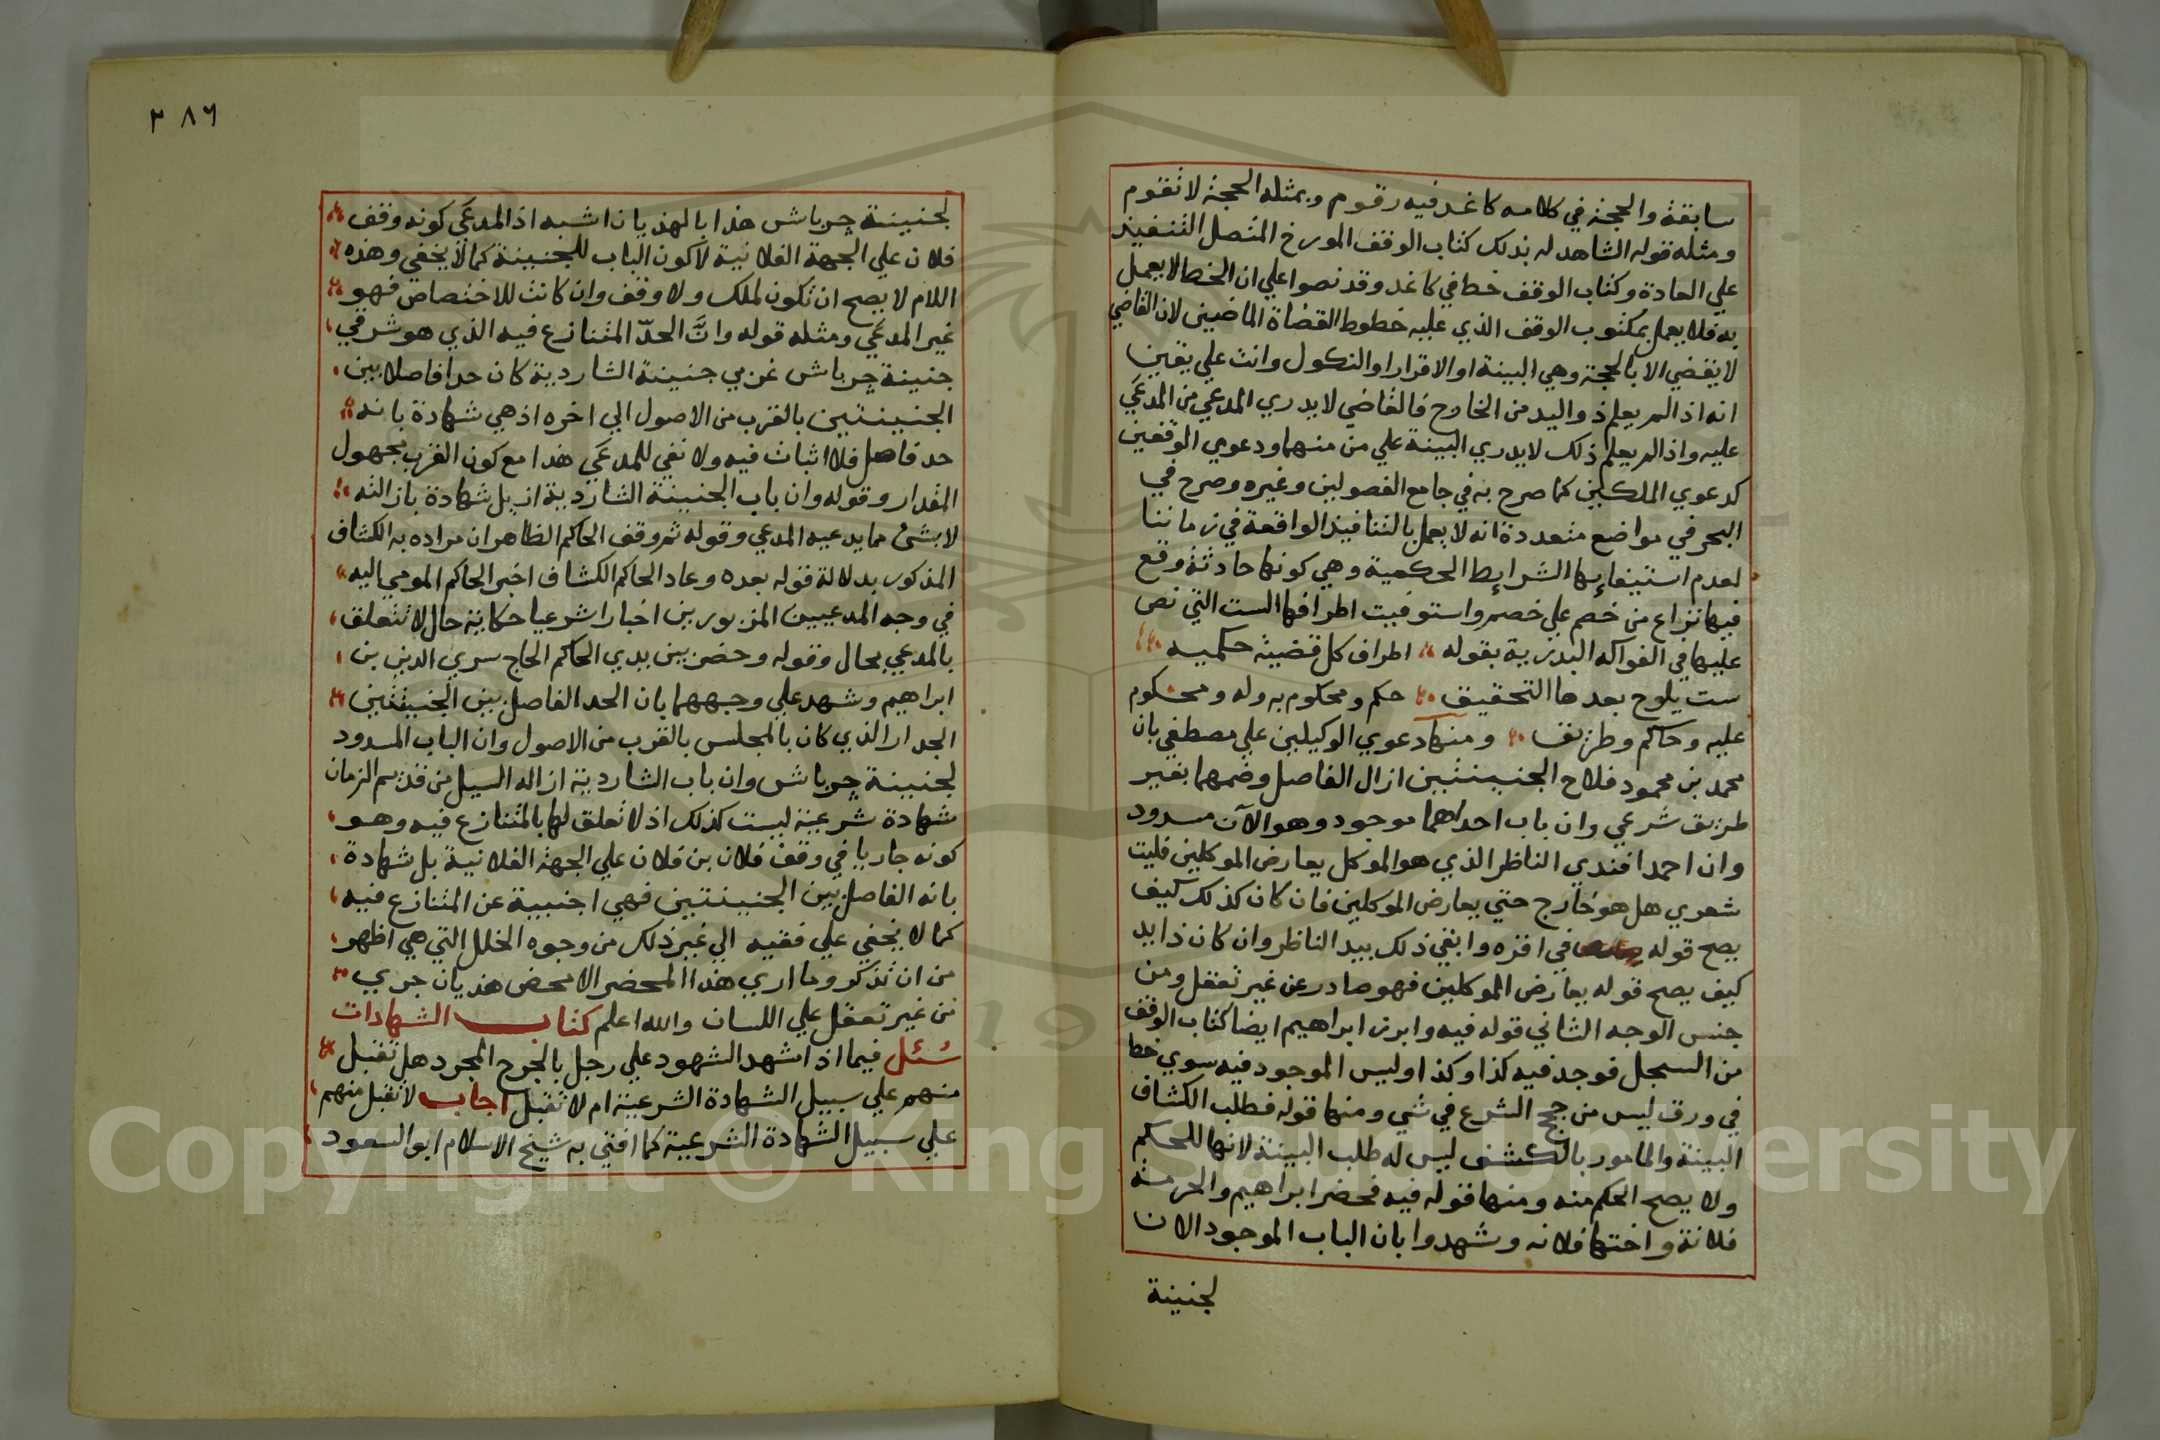 سابقة والحجة في كلامه كاغد فيه رقوم وبمثله الحجة لا تقوم
ومثله قوله الشاهد له بذلك كتاب الوقف المورخ المتصل التنفيذ
علي العادة وكتاب الوقف خط في كاغد وقد نصوا علي ان الخط لا يعمل
به فلا يعمل بمكتوب الوقف الذي عليه خطوط القضاة الماضين لان القاضي
لا يقضي الا بالحجة وهي البينة او الاقرار او النكول وانت علي يقين
انه اذا لم يعلم ذو اليد من الخارج فالقاضي لا يدري المدعي من المدعي
عليه واذا لم يعلم ذلك لا يدري البينة علي من منهما ودعوي الوقفين
كدعوي الملكين كما صرح به في جامع الفصولين وغيره وصرح في
البحر في مواضع متعددة انه لا يعمل بالتنافيذ الواقعة في زماننا
لعدم استيفايها الشرايط الحكمية وهي كونها حادثة وقع
فيها نزاع من خصم علي خصم واستوفيت اطرافها الست التي نص
عليها في الفواكه البدرية بقوله اطراف كل قضية حكميه
ست يلوح بعدها التحقيق حكم ومحكوم به وله ومحكوم
عليه وحاكم وطريق ومنها دعوي الوكيلين علي مصطفي بان
محمد بن محمود فلاح الجنينتين ازال الفاصل وضمهما بغير
طريق شرعي وان باب احداهما موجود وهو الآن مسدود
وان احمد افندي الناظر الذي هو الموكل يعارض الموكلين فليت
شعري هل هو خارج حتي يعارض الموكلين فان كان كذلك كيف
يصح قوله في اقره وابقي ذلك بيد الناظر وان كان ذا يد
كيف يصح قوله يعارض الموكلين فهو صادر عن غير تعقل ومن
جنس الوجه الثاني قوله فيه وابرز ابراهيم ايضا كتاب الوقف
من السجل فوجد فيه كذا وكذا وليس الموجود فيه سوي خط
في ورق ليس من حجج الشرع في شي ومنها قوله فطلب الكشاف
البينة والمامور بالكشف ليس له طلب البينة لانها للحكم
ولا يصح الحكم منه ومنها قوله فيه فحضر ابراهيم والحرمة
فلانة واختها فلانه وشهدوا بان الباب الموجود الان
لجنينة
٣٨٦
لجنينة جرباش هذا بالهذيان اشبه اذ المدعي كونه وقف
فلان علي الجهة الفلانية لا كون الباب للجنينة كما لا يخفي وهذه
اللام لا يصح ان تكون لملك ولا وقف وان كانت للاختصاص فهو
غير المدعي ومثله قوله وانّ الحدّ المتنازع فيه الذي هو شرقي
جنينة جرباش غربي جنينة الشاردية كان حدا فاصلا بين
الجنينتين بالقرب من الاصول الي اخره اذ هي شهادة بانه
حد فاصل فلا اثبات فيه ولا نفي للمدعي هذا مع كون القرب مجهول
المقدار وقوله وان باب الجنينة الشاردية ازيل شهادة بازالته
لا بشئ مما يدعيه المدعي وقوله ثم وقف الحاكم الظاهر ان مراده به الكشاف
المذكور بدلالة قوله بعده وعاد الحاكم الكشاف اخبر الحاكم المومي اليه
في وجه المدعيين المزبورين اخبارا شرعيا حكاية حال لا تتعلق
بالمدعي بحال وقوله وحضر بين يدي الحاكم الحاج سري الدين بن
ابراهيم وشهد علي وجههما بان الحد الفاصل بين الجنينتين
الجدار الذي كان بالمجلس بالقرب من الاصول وان الباب المسدود
لجنينة جرباش وان باب الشاردية ازاله السيل من قديم الزمان
شهادة شرعية ليست كذلك اذ لا تعلق لها بالمتنازع فيه وهو
كونه جاريا في وقف فلان بن فلان علي الجهة الفلانية بل شهادة
بانه الفاصل بين الجنينتين فهي اجنبية عن المتنازع فيه
كما لا يخفي علي فقيه الي غير ذلك من وجوه الخلل التي هي اظهر
من ان تذكر وما اري هذا المحضر الا محض هذيان جري
من غير تعقل علي اللسان والله اعلم كتاب الشهادات
سُئل فيما اذا شهد الشهود علي رجل بالجرح المجرد هل تقبل
منهم علي سبيل الشهادة الشرعية ام لا تقبل اجاب لا تقبل منهم
علي سبيل الشهادة الشرعية كما افتي به شيخ الاسلام ابو السعود
Copyright © King Saud University